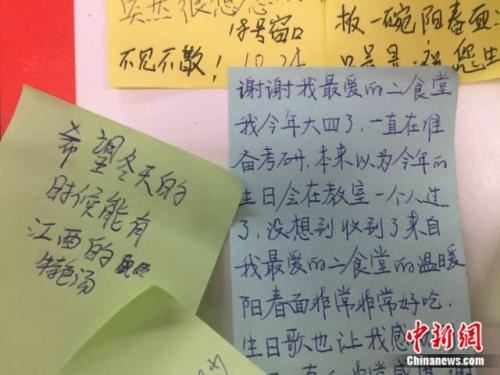 突然很想您
15号窗口
不见不散！ 10.24
板一碗阳春面:
希望冬天的
时候能有
江西的
特色汤
谢谢我最爱的二食堂
我今年大四了，一直在准
备考研，本来以为今年的
生日会在教室一个人过
了，没想到收到了来自
我最爱的二食堂的温暖
阳春面非常非常好吃，
生日歌也让我感
中新网
Chinanews.com